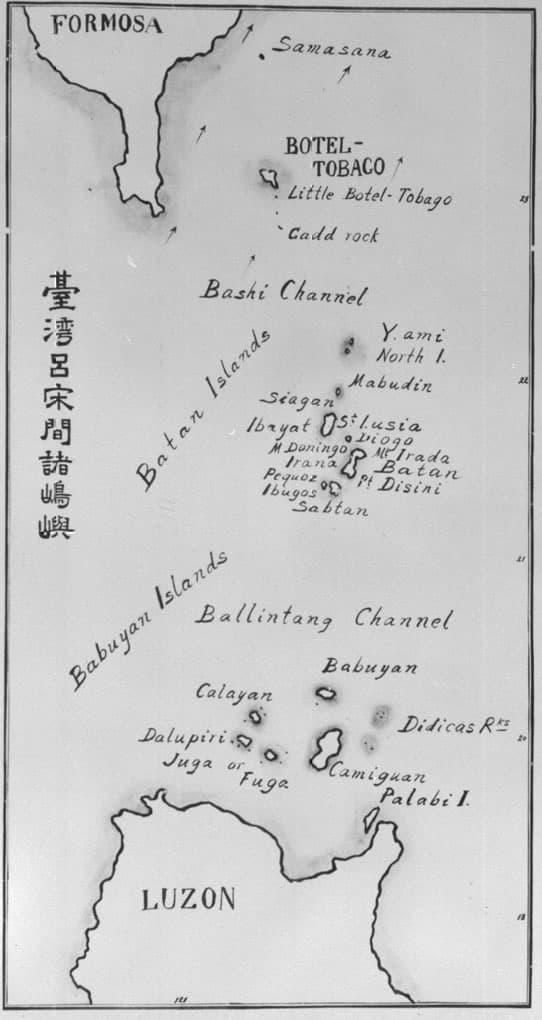 FORMOSA
Samasana
BOTEL-
TOBACO
Little Botel-Tobago
Gadd rock
Bashi Channel
臺灣呂宋間諸嶋嶼
Batan Islands
Y.ami
North I.
Mabudin
Siagan
Ibayat
St Lusia
Diogo
M.Domingo
Mt Irada
Irana
Batan
Pequoz
Pt Disini
Ibugos
Sabtan
21
Babuyan Islands
Ballintang Channel
Babuyan
Calayan
Didicas Rks
20
Dalupiri
Juga or
Fuga
Camiguan
Palabi I.
LUZON